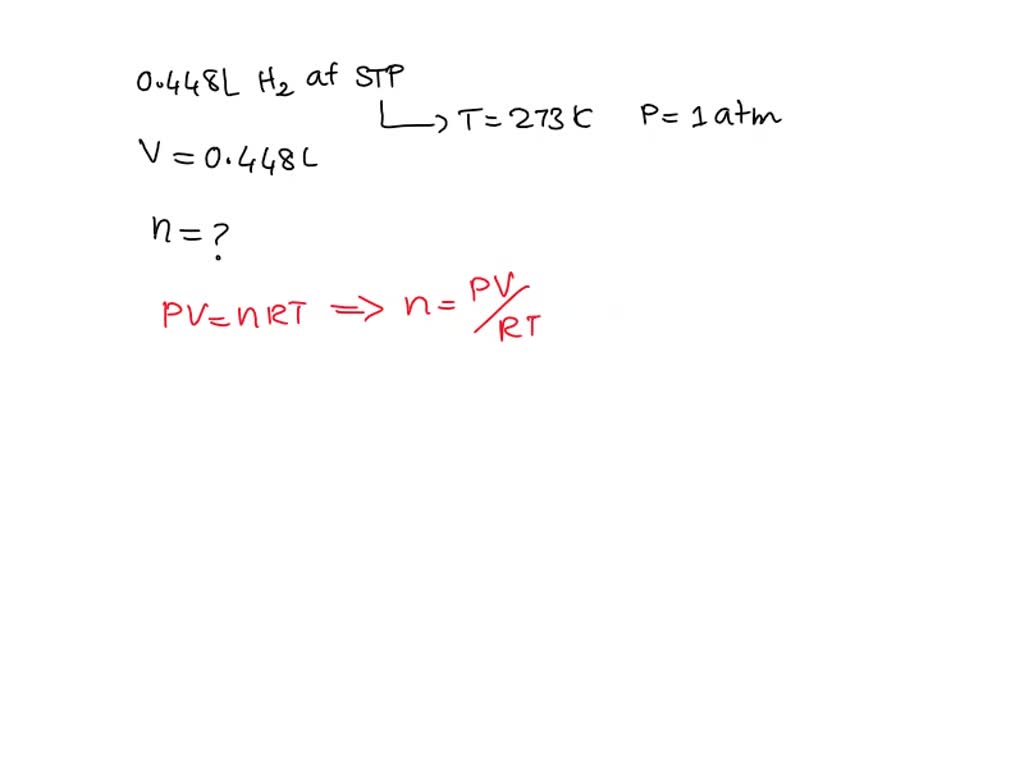 0.448L H2 at STP
↳ T = 273 K P = 1 atm
V = 0.448 L
n = ?
PV = nRT ⇒ n = PV/RT